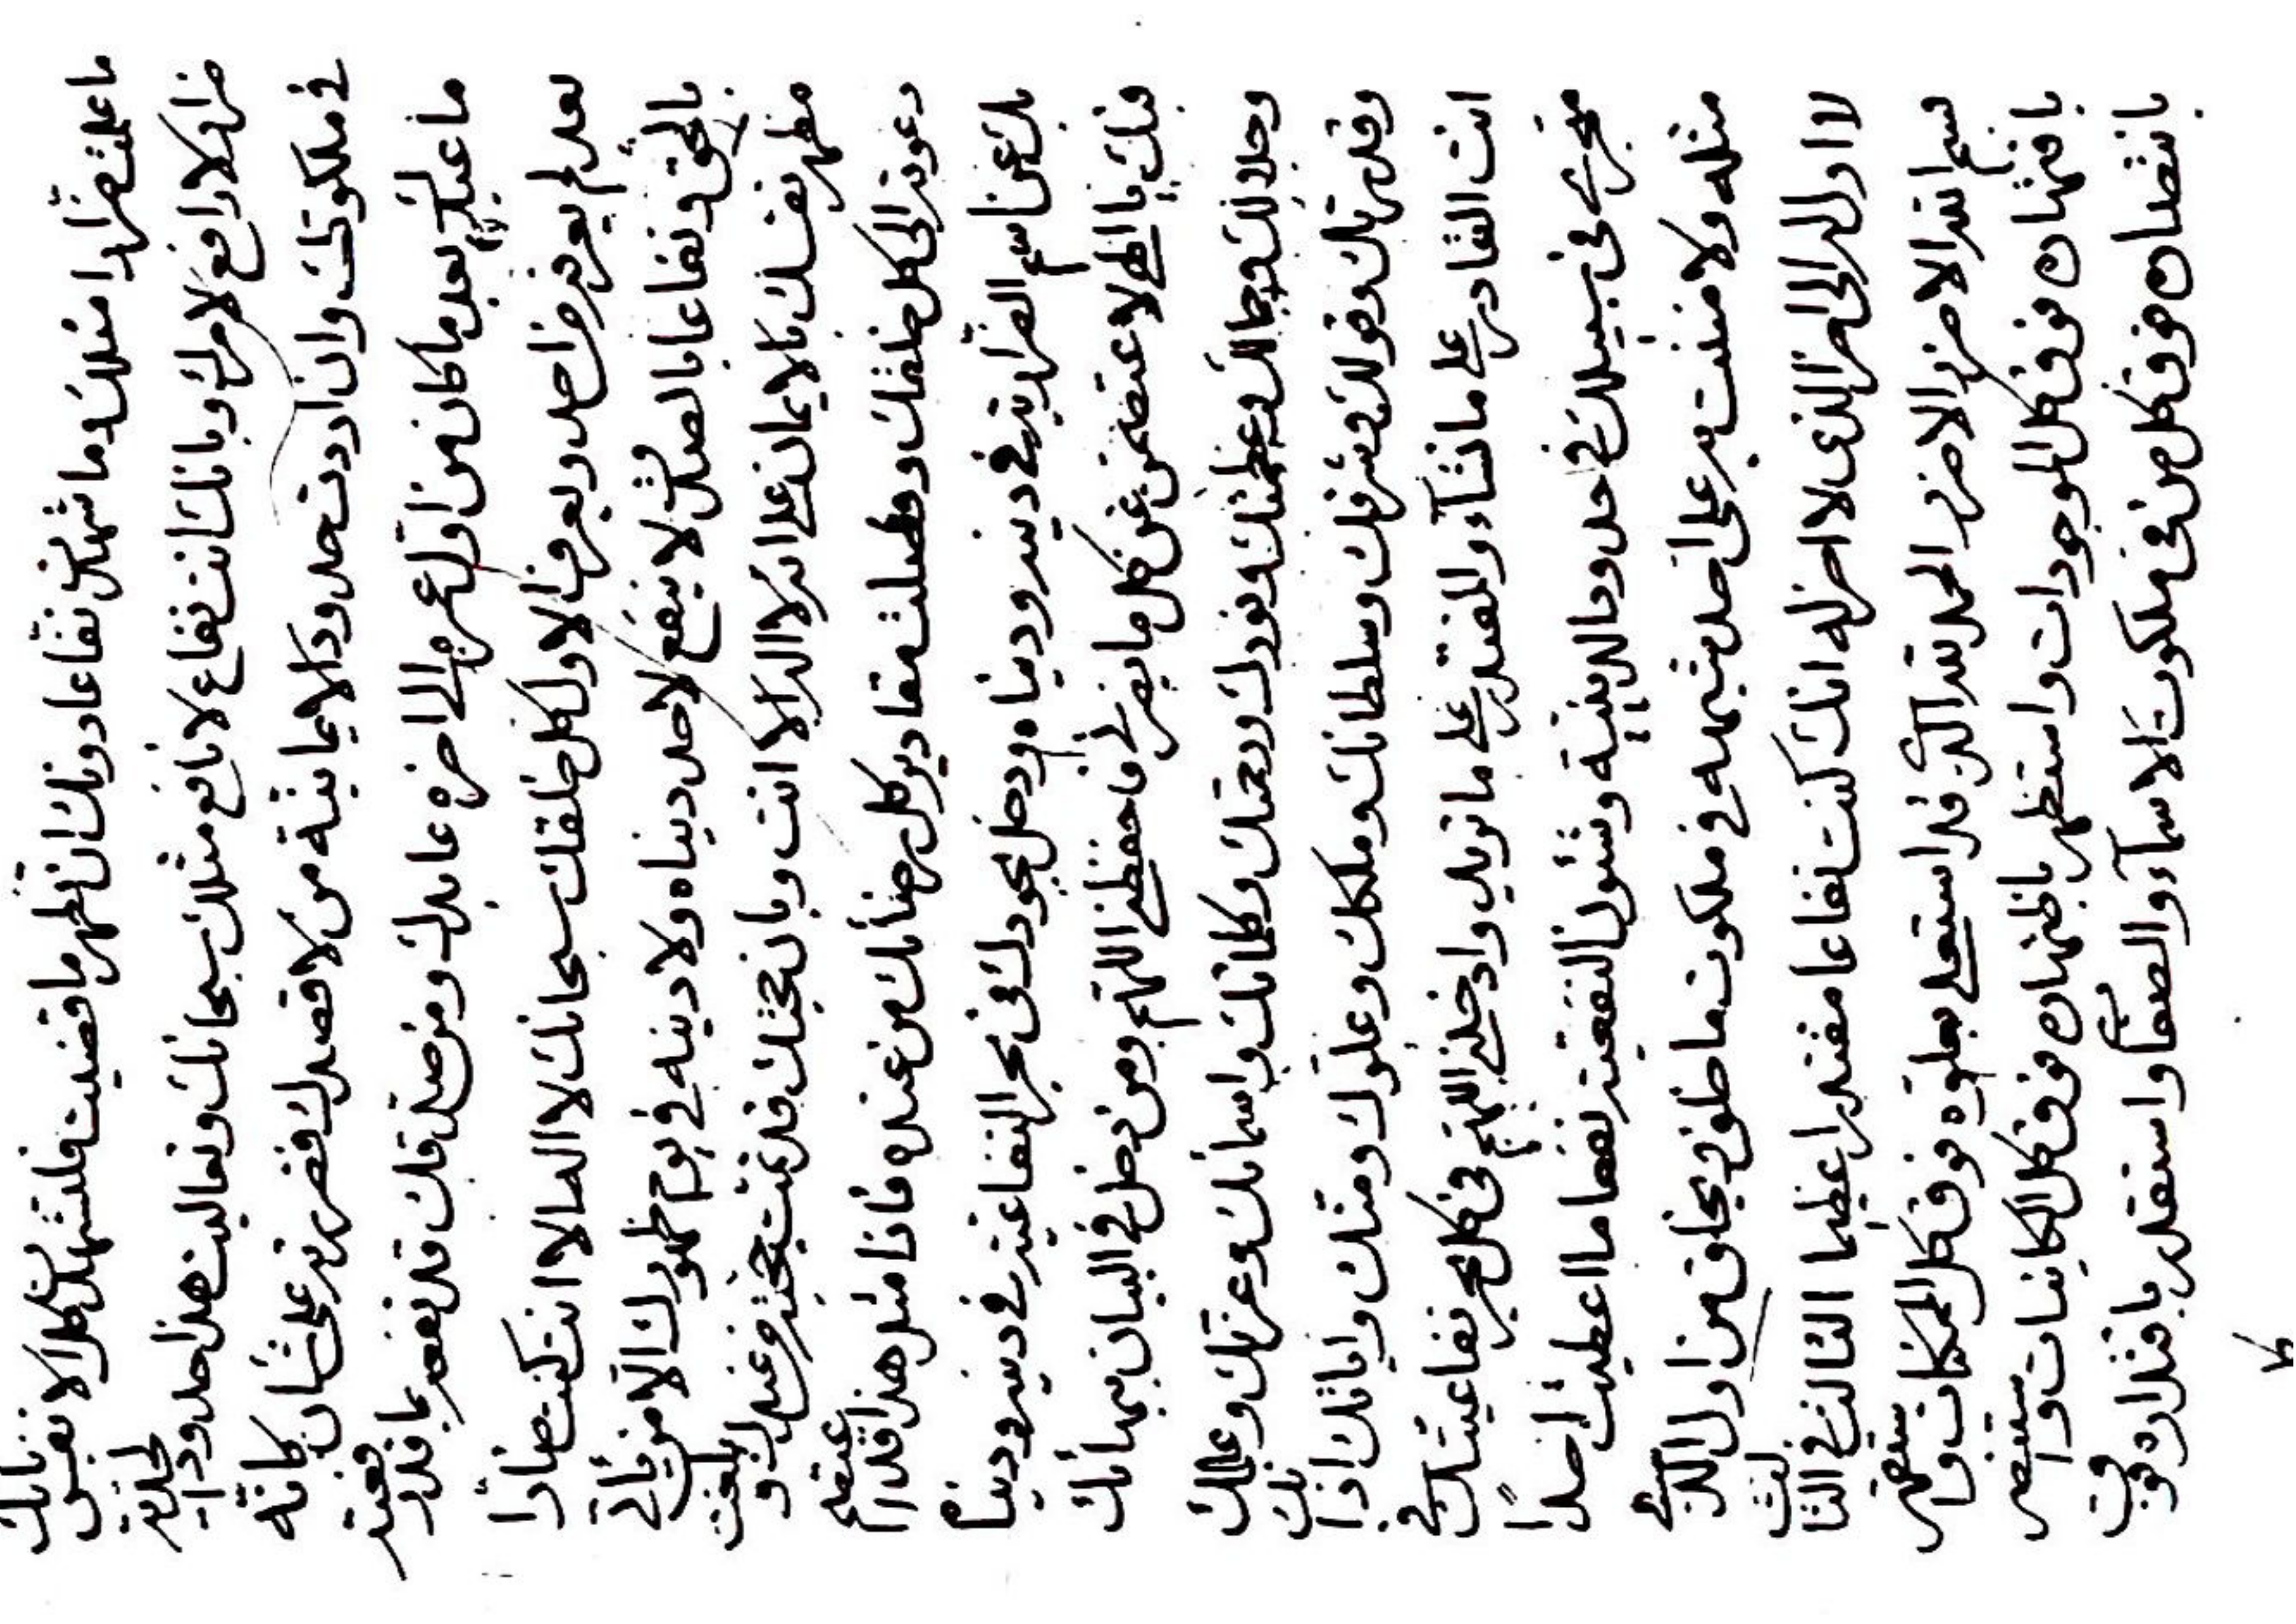 ما علمت ضرّارا مثلك وما شهدت نفّاعا دونك ان تظهر ما قضيت فلتشهدن كلا لا نفس
ضرار لا دافع لامرك وبانك انت نفاع لا نافع مثلك سبحانك وتعاليت هذا حدود الخلقية
في ملكوتك وان اردت حدود الايمانية من لا قصدك فضررته على شان كانه
ما عبدك بعد ما كان من اول عمره الى اخره عابدك ومن صدقك قد نفعته بما قدر
بعد لم يعرفه من احد ويعرف الاول كل خلقك سبحانك لا اله الا انت كنت ضارا
بالحق ونفاعا بالصدق لا ينفع لاحد دنياه ولا دينه في يوم ظهورك الا من ياتي
مظهر نفسك بالايمان على انه لا اله الا انت وبان حجتك قد تمت بحجته من عندك وبلغت
دعوته الى كل خلقك وفصلت مقادير كل رضائك من عنده فاذا مثل هذا قد اعتصم
بك عن اسم الضرارية في دينه ودنياه ودخل بجودك في بحر النفاعية في دينه ودنياه
فبك يا الهي لاعتصمن عن كل ما يضرني فاحفظني اللهم ومن دخل في البيان ببهائك
وجلالك وجمالك وعظمتك ونورك ورحمتك وكلماتك واسمائك وعزتك وعلمك
وقدرتك وقولك وشرفك وسلطانك وملكك وعلوك ومنك واياتك اذ انك
انت القادر على ما تشآء والمقتدر على ما تريد وادخلني اللهم في كل بحر نفاعيتك
في سبيلك في حدود الدينية وشئون النفعية نفعا ما اعطيت احدا
مثله ولا مننت به على احد شبهه في ملكوت ما خلق ويخلق من اول الذي
لا اول له الى اخر الذي لا اخر له انك كنت نفاعا مقتدرا عظيما الثالث في الثالث
بسم الله الاضرر الاضرر الحمد لله الذي قد استعلى بعلوه فوق كل الممكنات واستقهر
باقتهاره فوق كل الموجودات واستظهر باظتهاره فوق كل الكاينات واستنصر
بانتصاره فوق كل من في ملكوت الاسمآء والصفات واستقدر باقتداره فوق